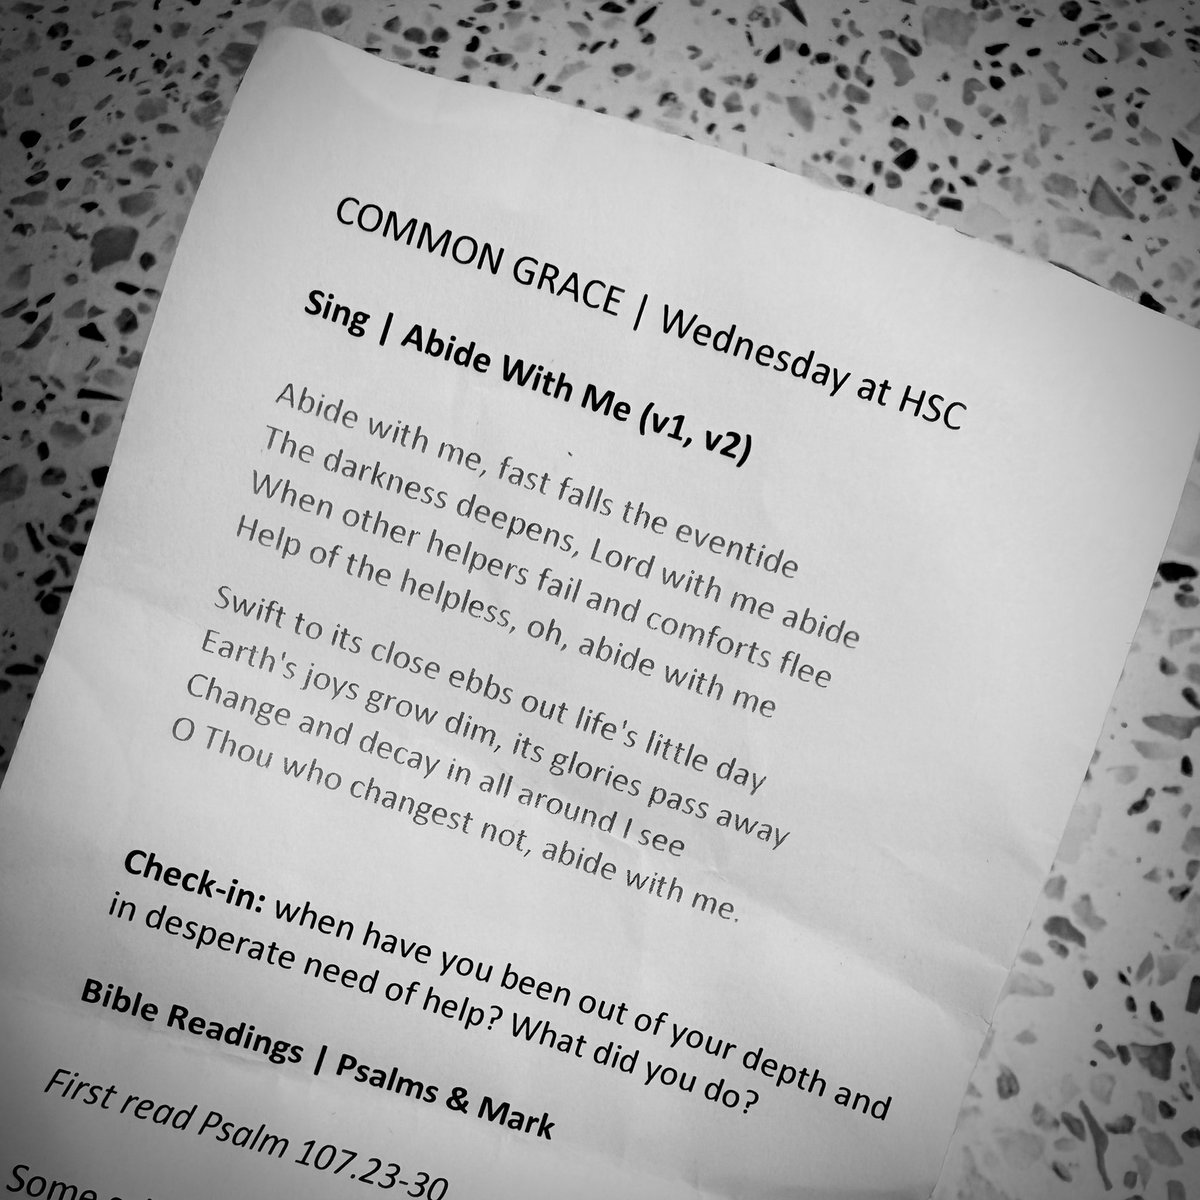 COMMON GRACE | Wednesday at HSC
Sing | Abide With Me (v1, v2)
Abide with me, fast falls the eventide
The darkness deepens, Lord with me abide
When other helpers fail and comforts flee
Help of the helpless, oh, abide with me
Swift to its close ebbs out life's little day
Earth's joys grow dim, its glories pass away
Change and decay in all around I see
O Thou who changest not, abide with me.
Check-in: when have you been out of your depth and
in desperate need of help? What did you do?
Bible Readings | Psalms & Mark
First read Psalm 107.23-30
Some